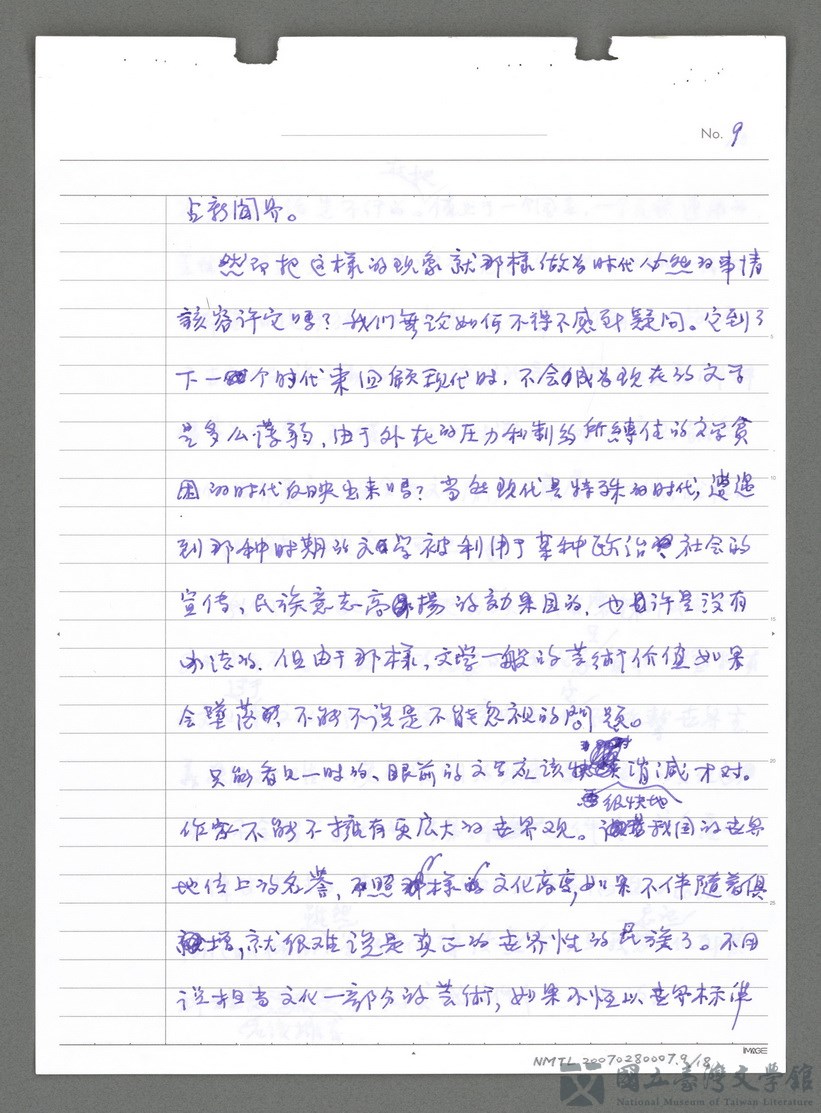 No. 9
占新聞界。
然而把这樣的现象就那樣做为时代必然的事情
該容许它嗎？我们無论如何不得不感到疑问。它到了
下一个时代来回顧现代时，不会成为现在的文学
是多么薄弱，由于外在的压力和制约所縛住的文学貧
困的时代反映出来嗎？当然现代是特殊的时代，遭遇
到那种时期的文学被利用于某种政治社会的
宣传、民族意志高揚的効果目的，也許是没有
办法的，但由于那樣，文学一般的芸術价值如果
会墮落时，不能不说是不能忽視的問題。
只能看见一时的、眼前的文学应该消滅才对。
很快地
作家不能不擁有更広大的世界观。我国的世界
地位上的名誉，照那樣的文化高度，如果不伴隨着俱
增，就很难说是真正的世界性的民族了。不用
说担当文化一部分的芸術，如果不恒以世界标准
IMAGE
NMTL 20070280007.9/18
國立臺灣文學館
National Museum of Taiwan Literature